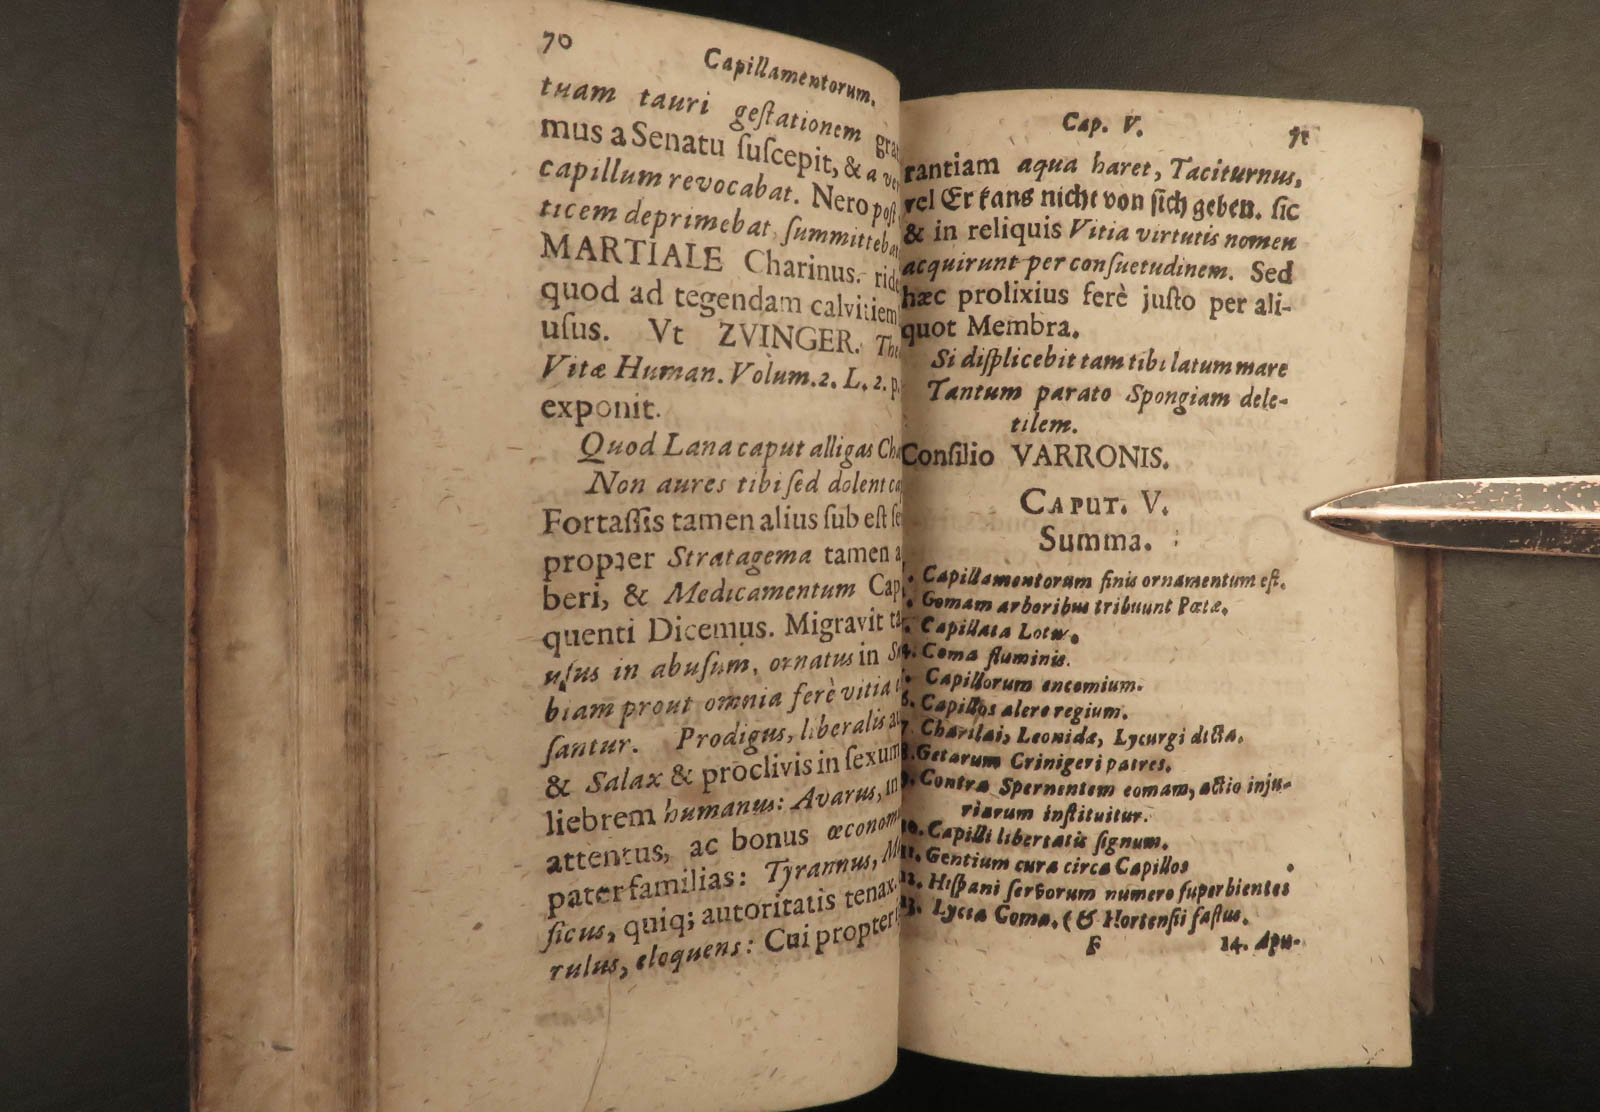 70
Capillamentorum.
tuam tauri geſtationem
mus a Senatu ſuſcepit, & a
capillum revocabat. Nero poſt
ticem deprimebat, ſummitteba
MARTIALE Charinus. ride
quod ad tegendam calvitiem
uſus. Vt ZVINGER. The
Vitæ Human. Volum. 2. L. 2. p.
exponit.
Quod Lana caput alligas Cha
Non aures tibi ſed dolent ca
Fortaſſis tamen alius ſub eſt ſe
propter Stratagema tamen a
beri, & Medicamentum Cap
quenti Dicemus. Migravit ta
uſus in abuſum, ornatus in
biam prout omnia ferè vitia
ſantur. Prodigus, liberalis au
& Salax & proclivis in ſexum
liebrem humanus: Avarus, in
attentus, ac bonus œconom
paterfamilias: Tyrannus,
ficus, quiq; autoritatis tenax.
rulus, eloquens: Cui propter
Cap. V. 71
rantiam aqua haret, Taciturnus,
vel Er kans nicht von ſich geben. ſic
& in reliquis Vitia virtutis nomen
acquirunt per conſuetudinem. Sed
hæc prolixius ferè juſto per ali-
quot Membra.
Si diſplicebit tam tibi latum mare
Tantum parato Spongiam dele-
tilem.
Conſilio VARRONIS.
CAPUT. V.
Summa.
Capillamentorum finis ornamentum eſt.
Comam arboribus tribuunt Poetæ.
Capillata Lotus.
4. Coma fluminis.
Capillorum encomium.
6. Capillos alere regium.
7. Charilai, Leonidæ, Lycurgi dicta.
8. Getarum Crinigeri patres.
9. Contra Spernentem comam, actio inju-
riarum inſtituitur.
10. Capilli libertatis ſignum.
11. Gentium cura circa Capillos
12. Hiſpani ſervorum numero ſuperbientes
13. Lycta Coma. (& Hortenſii faſtus.
F 14. Apu-